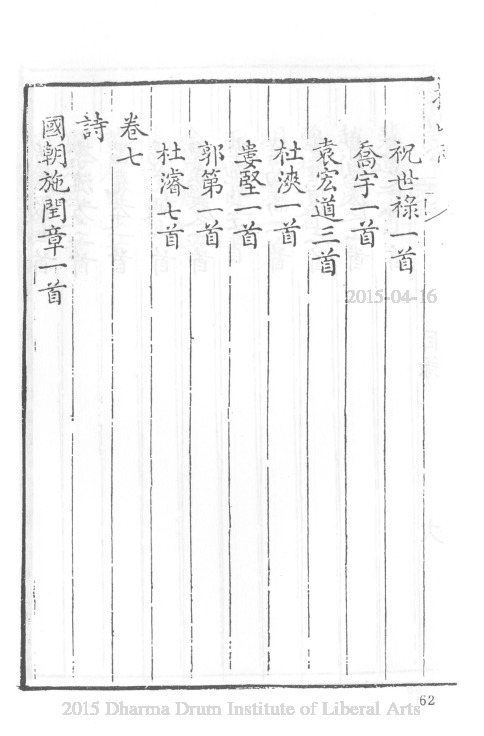 祝世祿一首
喬宇一首
袁宏道三首
杜漺一首
婁堅一首
郭第一首
杜濬七首
卷七
詩
國朝施閏章一首
2015-04-16
62
2015 Dharma Drum Institute of Liberal Arts